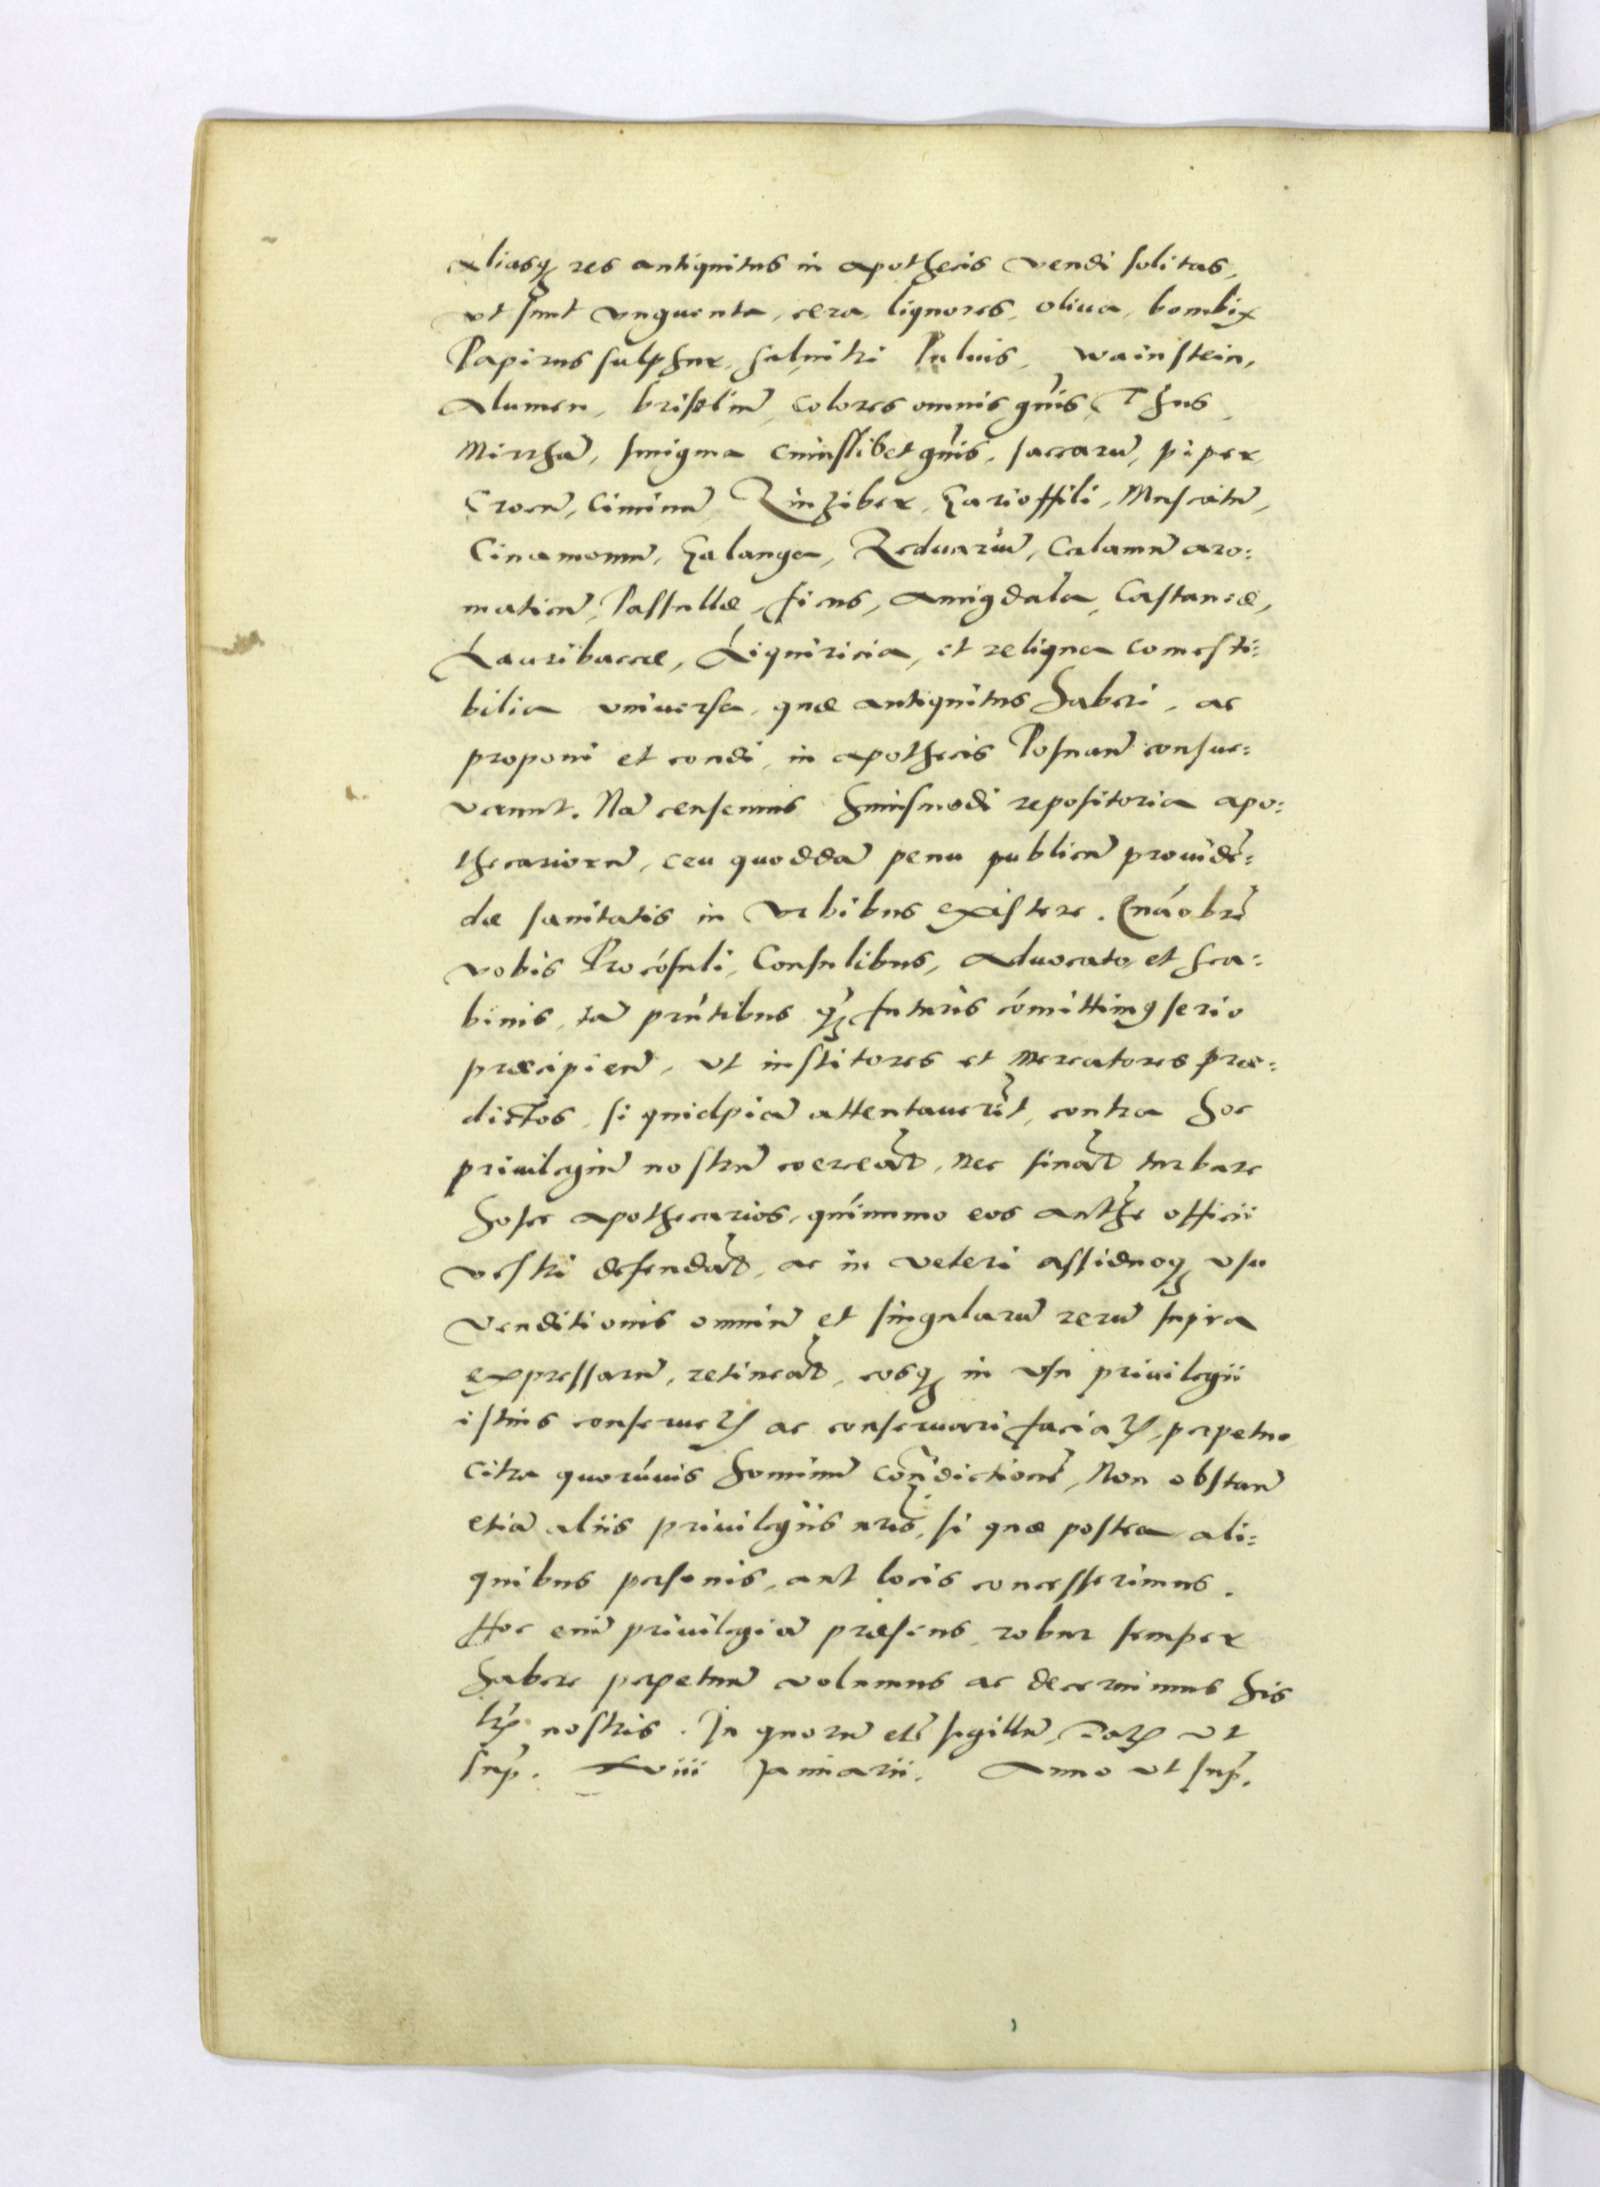 aliasq̃ res antiquitus in apothecis vendi solitas,
vt sunt vnguenta, cera, liquores, oliua, bombix
Papirus sulphur, salnitri Puluis, wainstein,
Alumen, brisoliũ, colores omnis gñis, Thus,
Mirrhã, smigma cuiuslibet gñis, saccarũ, piper
Crocũ, Ciminũ, Zinziber, Garioffili, Muscatũ,
Cinamomũ, Galanga, Zeduariũ, Calamũ aro:
maticũ, Passullæ, ficus, Amigdala, Castaneæ,
Lauribaccæ, Liquiricia, et reliqua comesti:
bilia vniuersa, quæ antiquitus haberi, ac
proponi et condi, in apothecis Posnanẽ consue:
verunt. Nã censemus huiusmodi repositoria apo:
thecariorũ, ceu quoddã penu publicũ prouidẽ:
dæ sanitatis in Vrbibus existere. Quãobrẽ
vobis Procõsuli, Consulibus, Aduocato et sca:
binis, tã pñtibus q̃ futuris cõmittimꝰ serio
præcipienẽ, vt institores et Mercatores præ:
dictos, si quidpiã attentauerĩt, contra hoc
priuilegiũ nostrũ coerceãt, nec sinãt turbare
hosce apothecarios, quinimmo eos authẽ officii
vestri defendãt, ac in veteri assiduoq̃ vsu
venditionis omniũ et singularũ rerũ supra
expressarũ, retineãt, eosq̃ in vsu priuilegii
istius conseruet̃ ac conseruari faciat̃, perpetuo
citra quorũuis hominũ cõñdictionẽ, Non obstanẽ
etiã aliis priuilegiis nr̃is, si quæ postea ali:
quibus personis, aut locis concesserimus.
Hoc enim priuilegiũ præsens robur semper
habere perpetuũ volumus ac decernimus his
lr̃is nostris. In quorũ etc̃ sigillũ, Dat̃ vt
sup̃. xviii Januarii. Anno vt sup̃.